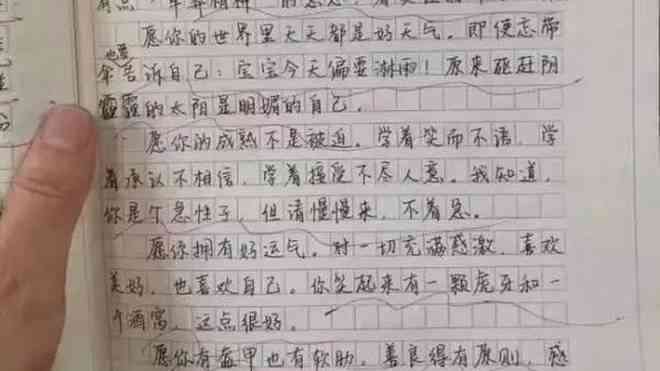 愿你的世界里天天都是好天气。即便忘带
也要
伞告诉自己：宝宝今天偏要淋雨！原来驱赶阴
霾的太阳是明媚的自己。
愿你的成熟不是被迫。学着笑而不语，学
着承认不相信，学着接受不尽人意。我知道，
你是个急性子，但请慢慢来，不着急。
愿你拥有好运气。对一切充满感激，喜欢
美好，也喜欢自己。你笑起来有一颗虎牙和一
个酒窝，这点很好。
愿你有盔甲也有软肋，善良得有原则，感